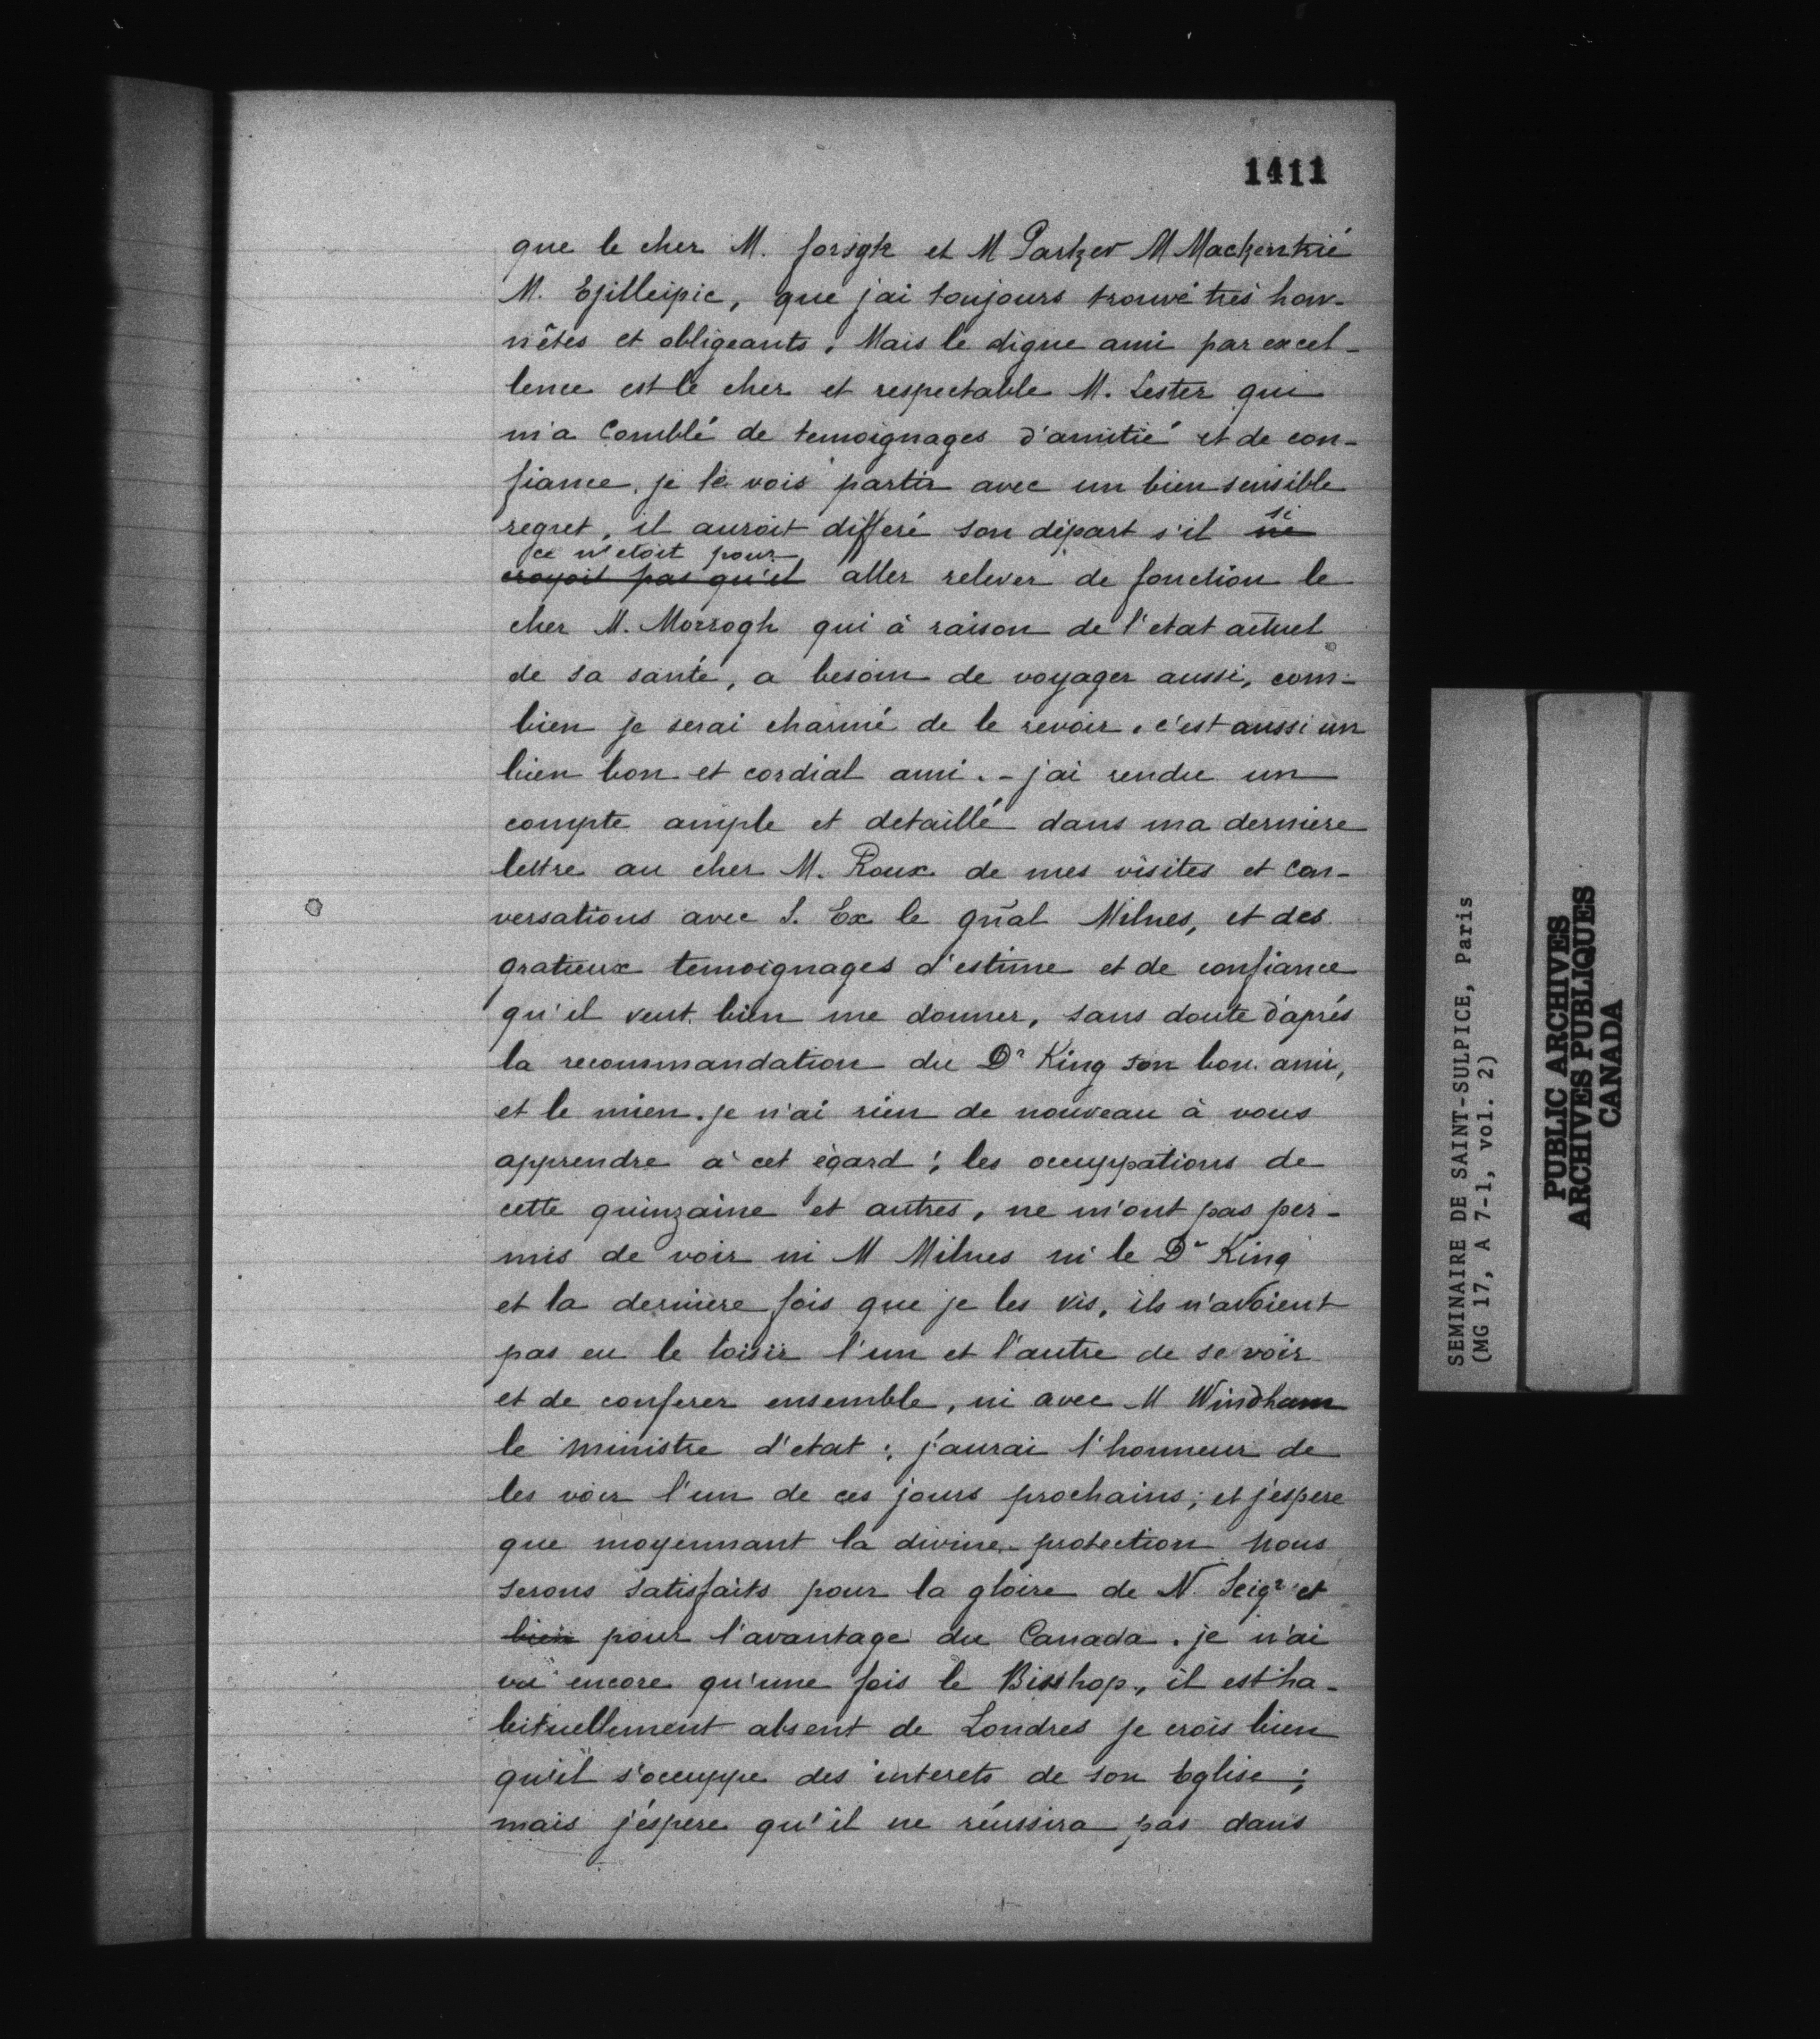 1411
que le cher M. forsgh et M Parker M Mackenkié
M. Ejilleipie, que j'ai toujours trouvé très hon-
nêtes et obligeants. Mais le digne ami par excel-
lence est le cher et respectable M. Lester qui
m'a comblé de temoignages d'amitié et de con-
fiance, je le vois partir avec un bien sensible
regret, il auroit differé son départ s'il ne
si
ce n'etoit pour
croyoit pas qu'il aller relever de fonction le
cher M. Morrogh qui à raison de l'etat actuel
de sa santé, a besoin de voyager aussi, com-
bien je serai charmé de le revoir. c'est aussi un
bien bon et cordial ami. - j'ai rendu un
compte ample et detaillé dans ma derniere
lettre au cher M. Roux de mes visites et con-
versations avec S. Ex le gñal Milnes, et des
gratieux temoignages d'estime et de confiance
qu'il veut bien me donner, sans doute d'aprés
la recommandation du Dr King son bon ami,
et le mien. je n'ai rien de nouveau à vous
apprendre à cet égard; les occuppations de
cette quinzaine et autres, ne m'ont pas per-
mis de voir ni M Milnes ni le Dr King
et la derniere fois que je les vis, ils n'avoient
pas eu le loisir l'un et l'autre de se voir
et de conferer ensemble, ni avec M Windham
le ministre d'etat; j'aurai l'honneur de
les voir l'un de ces jours prochains; et j'espere
que moyennant la divine protection nous
serons satisfaits pour la gloire de N. Seigr et
bien pour l'avantage du Canada. je n'ai
vu encore qu'une fois le Bisshop, il est ha-
bituellement absent de Londres je crois bien
qu'il s'occuppe des interets de son Eglise;
mais j'espere qu'il ne réussira pas dans
SEMINAIRE DE SAINT-SULPICE, Paris
(MG 17, A 7-1, vol. 2)
PUBLIC ARCHIVES
ARCHIVES PUBLIQUES
CANADA